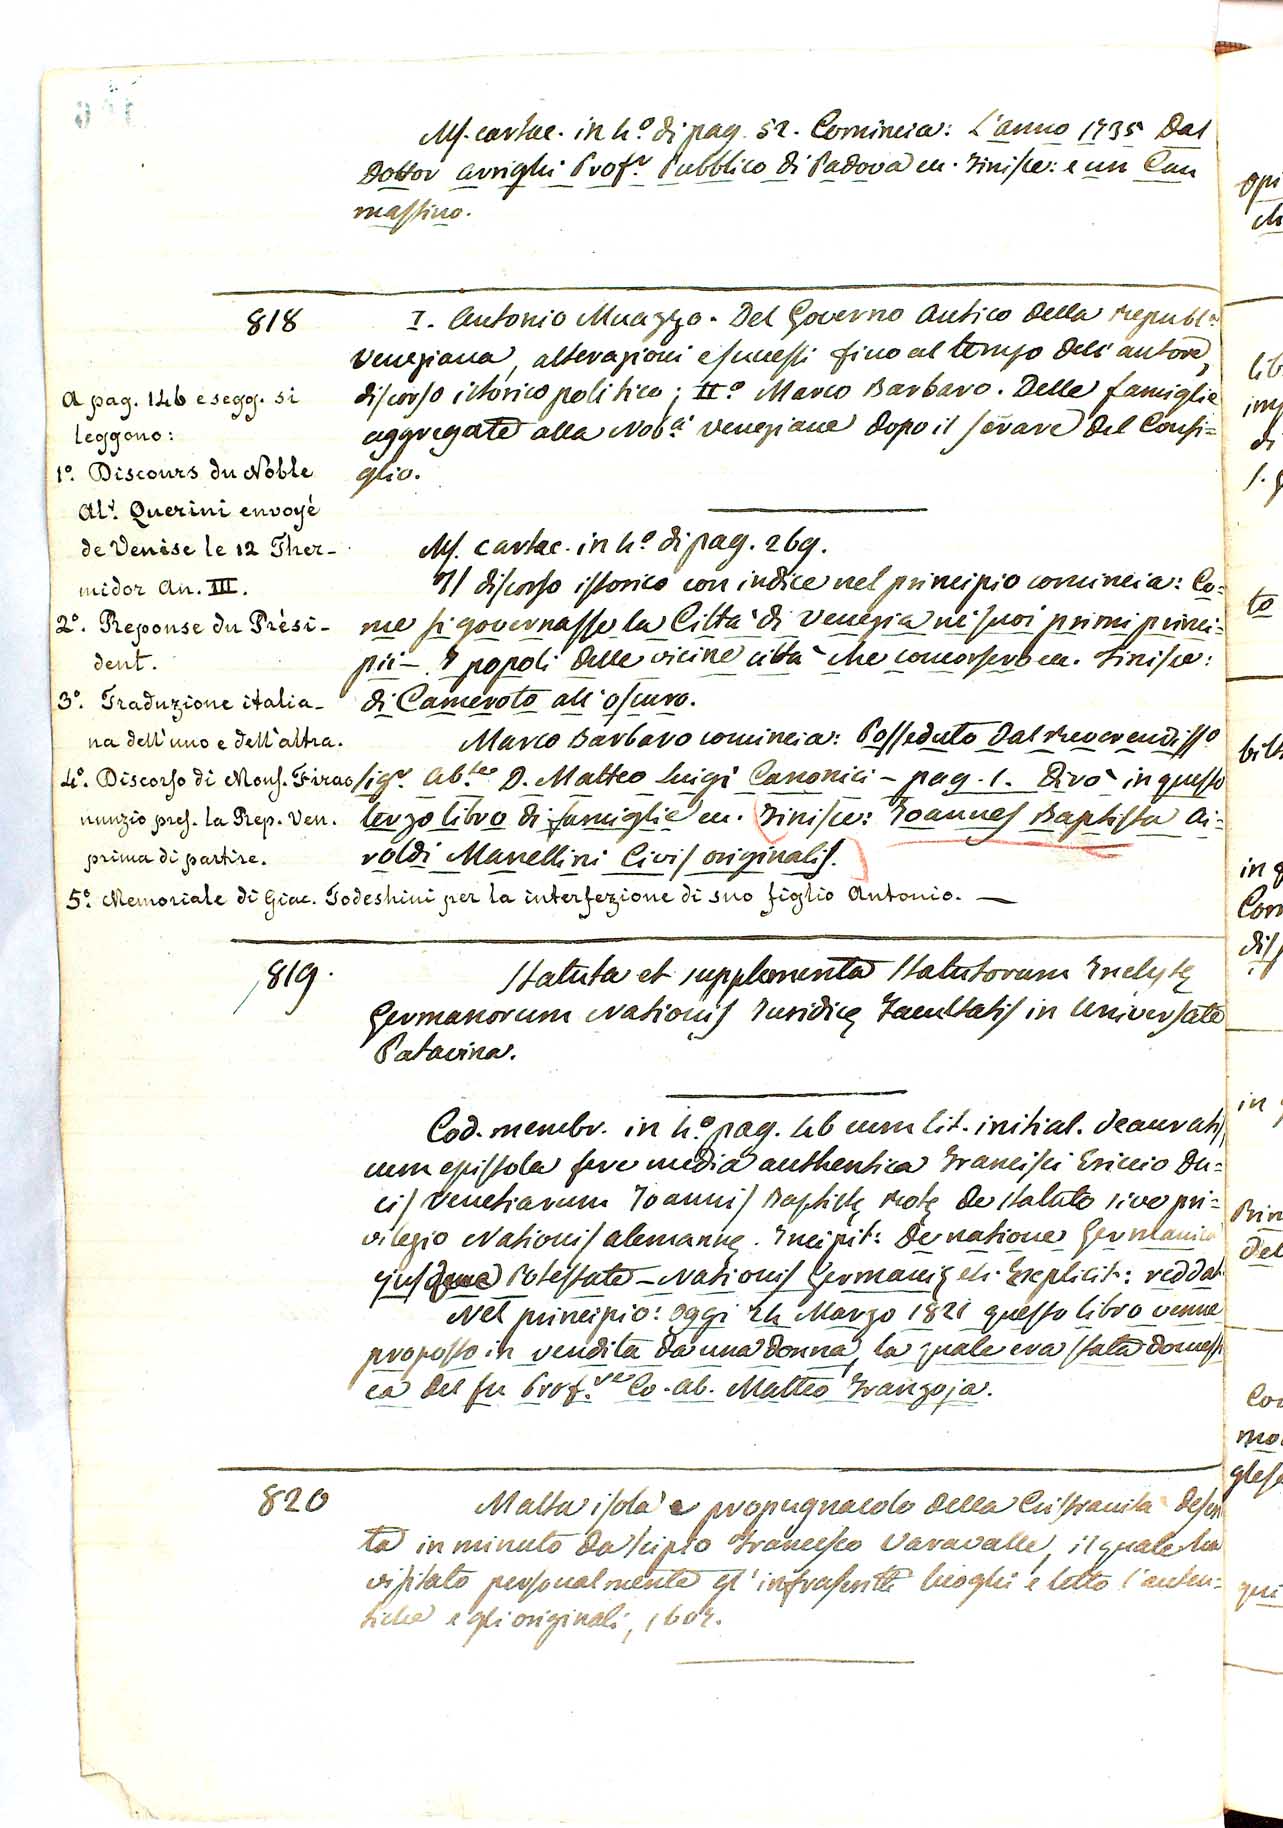 Ms. cartac. in 4.º di pag. 52. Comincia: L'anno 1735 Dal
Dottor Arrighi Prof.r Pubblico di Padova ec. Finisce: e un Can
massimo.
818
I. Antonio Muazzo. Del Governo Antico della Republ.a
Veneziana, alterazioni e successi fino al tempo dell'autore,
discorso istorico politico; II.º Marco Barbaro. Delle famiglie
aggregate alla Nob.a Veneziane dopo il serare del Consi=
glio.
A pag. 146 e segg. si
leggono:
1º. Discours du Noble
Al.e Querini envoyé
de Venise le 12 Ther-
midor An. III.
2º. Reponse du Prési-
dent.
3º. Traduzione italia-
na dell'uno e dell'altra.
4º. Discorso di Mons. Firao
nunzio pres. la Rep. Ven.
prima di partire.
5º. Memoriale di Giac. Todeshini per la interfezione di suo figlio Antonio. —
Ms. cartac. in 4.º di pag. 269.
Il discorso istorico con indice nel principio comincia: Co=
me si governasse la Città di Venezia ne' suoi primi princi=
pii — I popoli delle vicine città che concorsero ec. Finisce:
di Cameroto all'oscuro.
Marco Barbaro comincia: Posseduto dal Reverendiss.º
Sig.r Ab.te D. Matteo Luigi Canonici — pag. 1. Dirò in questo
terzo libro di famiglie ec. Finisce: Joannes Baptista Ai=
roldi Marellini Civis originalis.
819.
Statuta et supplementa Statutorum Inclytę
Germanorum Nationis Juridicę Facultatis in Universitate
Patavina.
Cod. membr. in 4.º pag. 46 cum lit. initial. deauratis,
cum epistola fere media authentica Francisci Ericcio Du=
cis Venetiarum Joannis Baptistę Rotę de Statuto sive pri=
vilegio Nationis alemannę. Incipit: De natione Germanica
ejusque Potestate — Nationis Germanię etc. Explicit: reddat.
Nel principio: Oggi 24 Marzo 1821 questo libro venne
proposto in vendita da una donna, la quale era stata domesti
ca del fu Prof.re Co. Ab. Matteo Franzoja.
820
Malta isola e propugnacolo della Cristianità descrit
ta in minuto da Scipio Francesco Varavalle, il quale ha
visitato personalmente gl'infrascritti luoghi e letto l'auten=
tiche e gli originali,